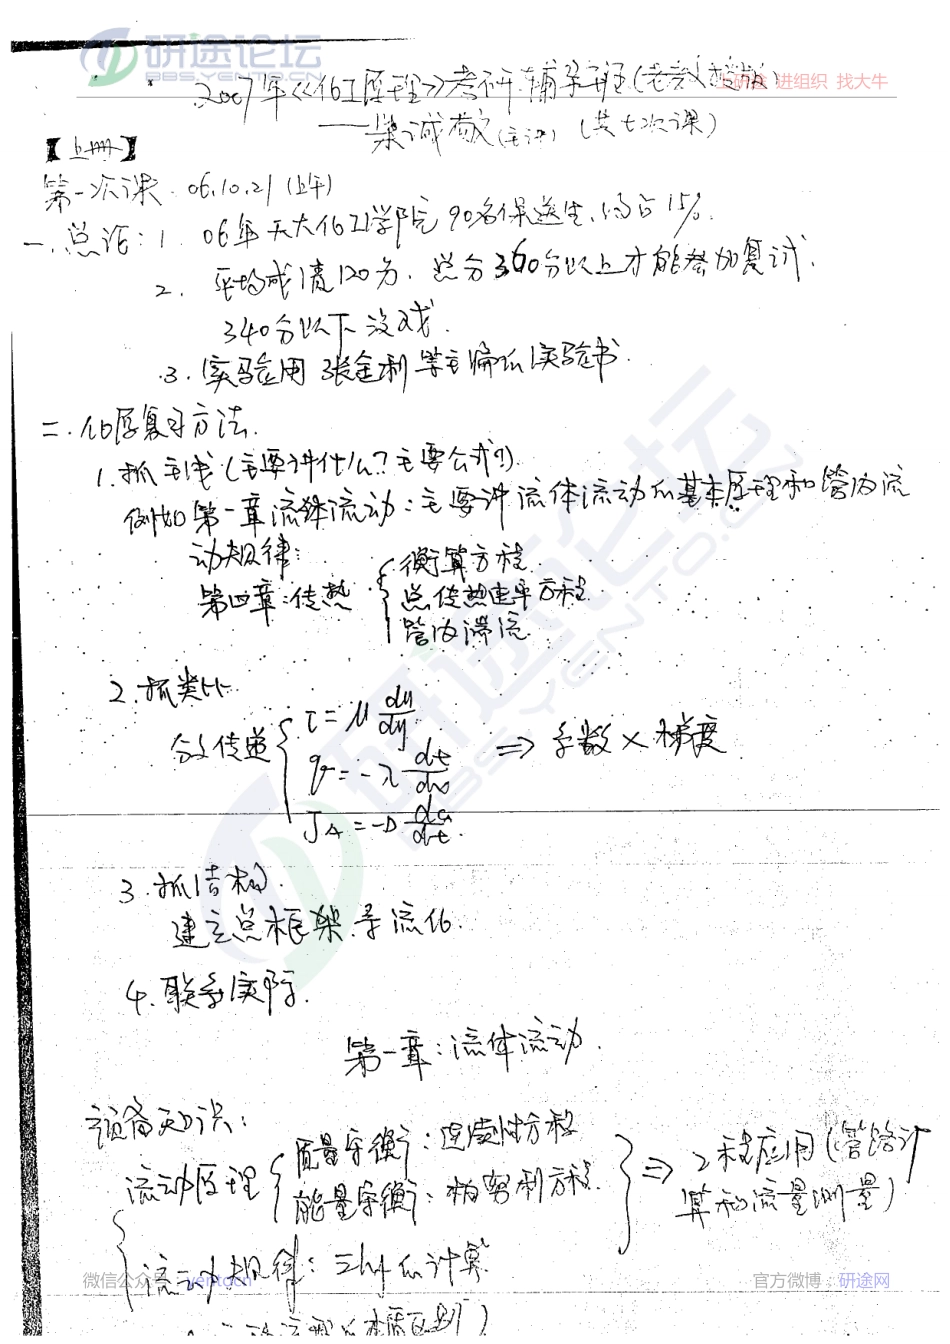 研途论坛
BBS.YENTO.CN
进组织 找大牛
2007年《化工原理》考研辅导班
——柴诚敬(主讲) (共七次课)
【上册】
第一次课 06.10.21 (上午)
一. 总论: 1. 06年天大化工学院90名保送生, 约占15%.
2. 平均成绩120分. 总分360分以上才能参加复试.
340分以下没戏.
3. 实验应用张金利等主编的实验书.
二. 化原复习方法.
1. 抓主线 (主要讲什么? 主要公式?)
例如第一章流体流动: 主要讲流体流动的基本原理和管内流
动规律;
第四章: 传热 { 衡算方程
总传热速率方程
管内滞流
2. 抓类比
分子传递 { τ = μ du/dy
q = -λ dt/
J_A = -D
⇒ 系数 × 梯度
3. 抓结构.
建立总框架. 系统化.
4. 联系实际.
第一章: 流体流动.
预备知识:
流动原理 { 质量守衡: 连续性方程
能量守衡: 柏努利方程.
} ⇒ 工程应用 (管路计
算和流量测量)
流动规律: Σhf的计算
微信公众号: yentocn
官方微博: 研途网